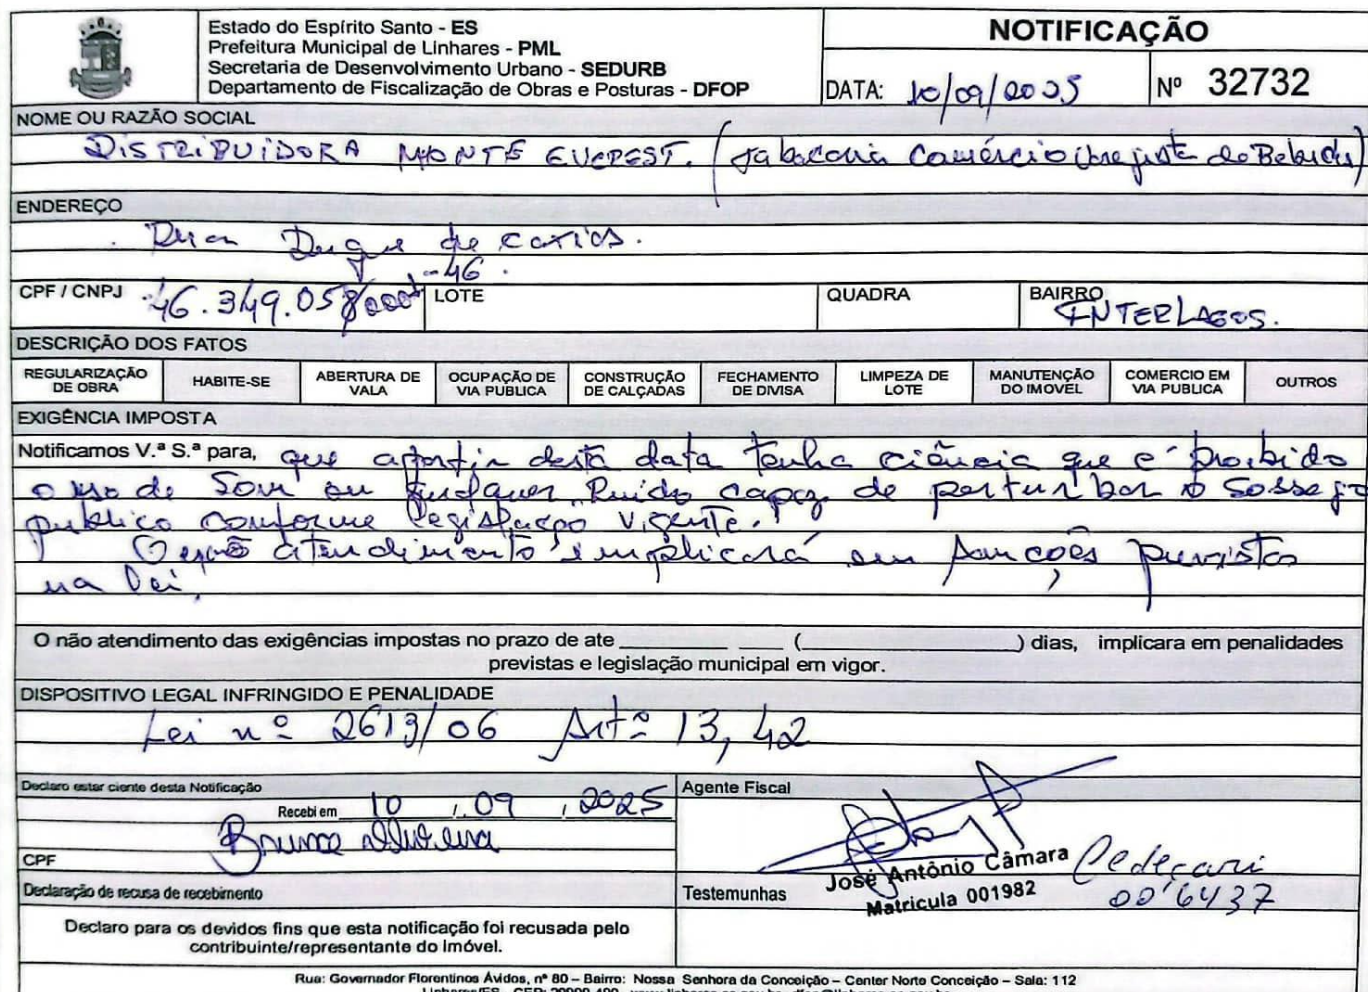 Estado do Espírito Santo - ES
Prefeitura Municipal de Linhares - PML
Secretaria de Desenvolvimento Urbano - SEDURB
Departamento de Fiscalização de Obras e Posturas - DFOP
NOTIFICAÇÃO
DATA: 10/09/2025
Nº 32732
NOME OU RAZÃO SOCIAL
DISTRIBUIDORA MONTE (Tabacaria Comércio de Bebidas)
ENDEREÇO
Rua Duque de caxias.
-46.
CPF / CNPJ 46.349.058/0001
LOTE
QUADRA
BAIRRO INTERLAGOS.
DESCRIÇÃO DOS FATOS
REGULARIZAÇÃO DE OBRA
HABITE-SE
ABERTURA DE VALA
OCUPAÇÃO DE VIA PUBLICA
CONSTRUÇÃO DE CALÇADAS
FECHAMENTO DE DIVISA
LIMPEZA DE LOTE
MANUTENÇÃO DO IMOVÉL
COMERCIO EM VIA PUBLICA
OUTROS
EXIGÊNCIA IMPOSTA
Notificamos V.ª S.ª para, que apartir desta data tenha ciência que é proibido
o uso de Som ou qualquer Ruído capaz de perturbar o Sossego
publico conforme legislação vigente.
O não atendimento implicará em sanções previstas
na lei.
O não atendimento das exigências impostas no prazo de ate ( ) dias, implicara em penalidades
previstas e legislação municipal em vigor.
DISPOSITIVO LEGAL INFRINGIDO E PENALIDADE
Lei nº 2613/06 Artº 13, 42
Declaro estar ciente desta Notificação
Recebi em 10 , 09 , 2025
CPF
Declaração de recusa de recebimento
Declaro para os devidos fins que esta notificação foi recusada pelo
contribuinte/representante do Imóvel.
Agente Fiscal
José Antônio Câmara
Matricula 001982
Testemunhas
006437
Rua: Governador Florentinos Ávidos, nº 80 – Bairro: Nossa Senhora da Conceição – Center Norte Conceição – Sala: 112